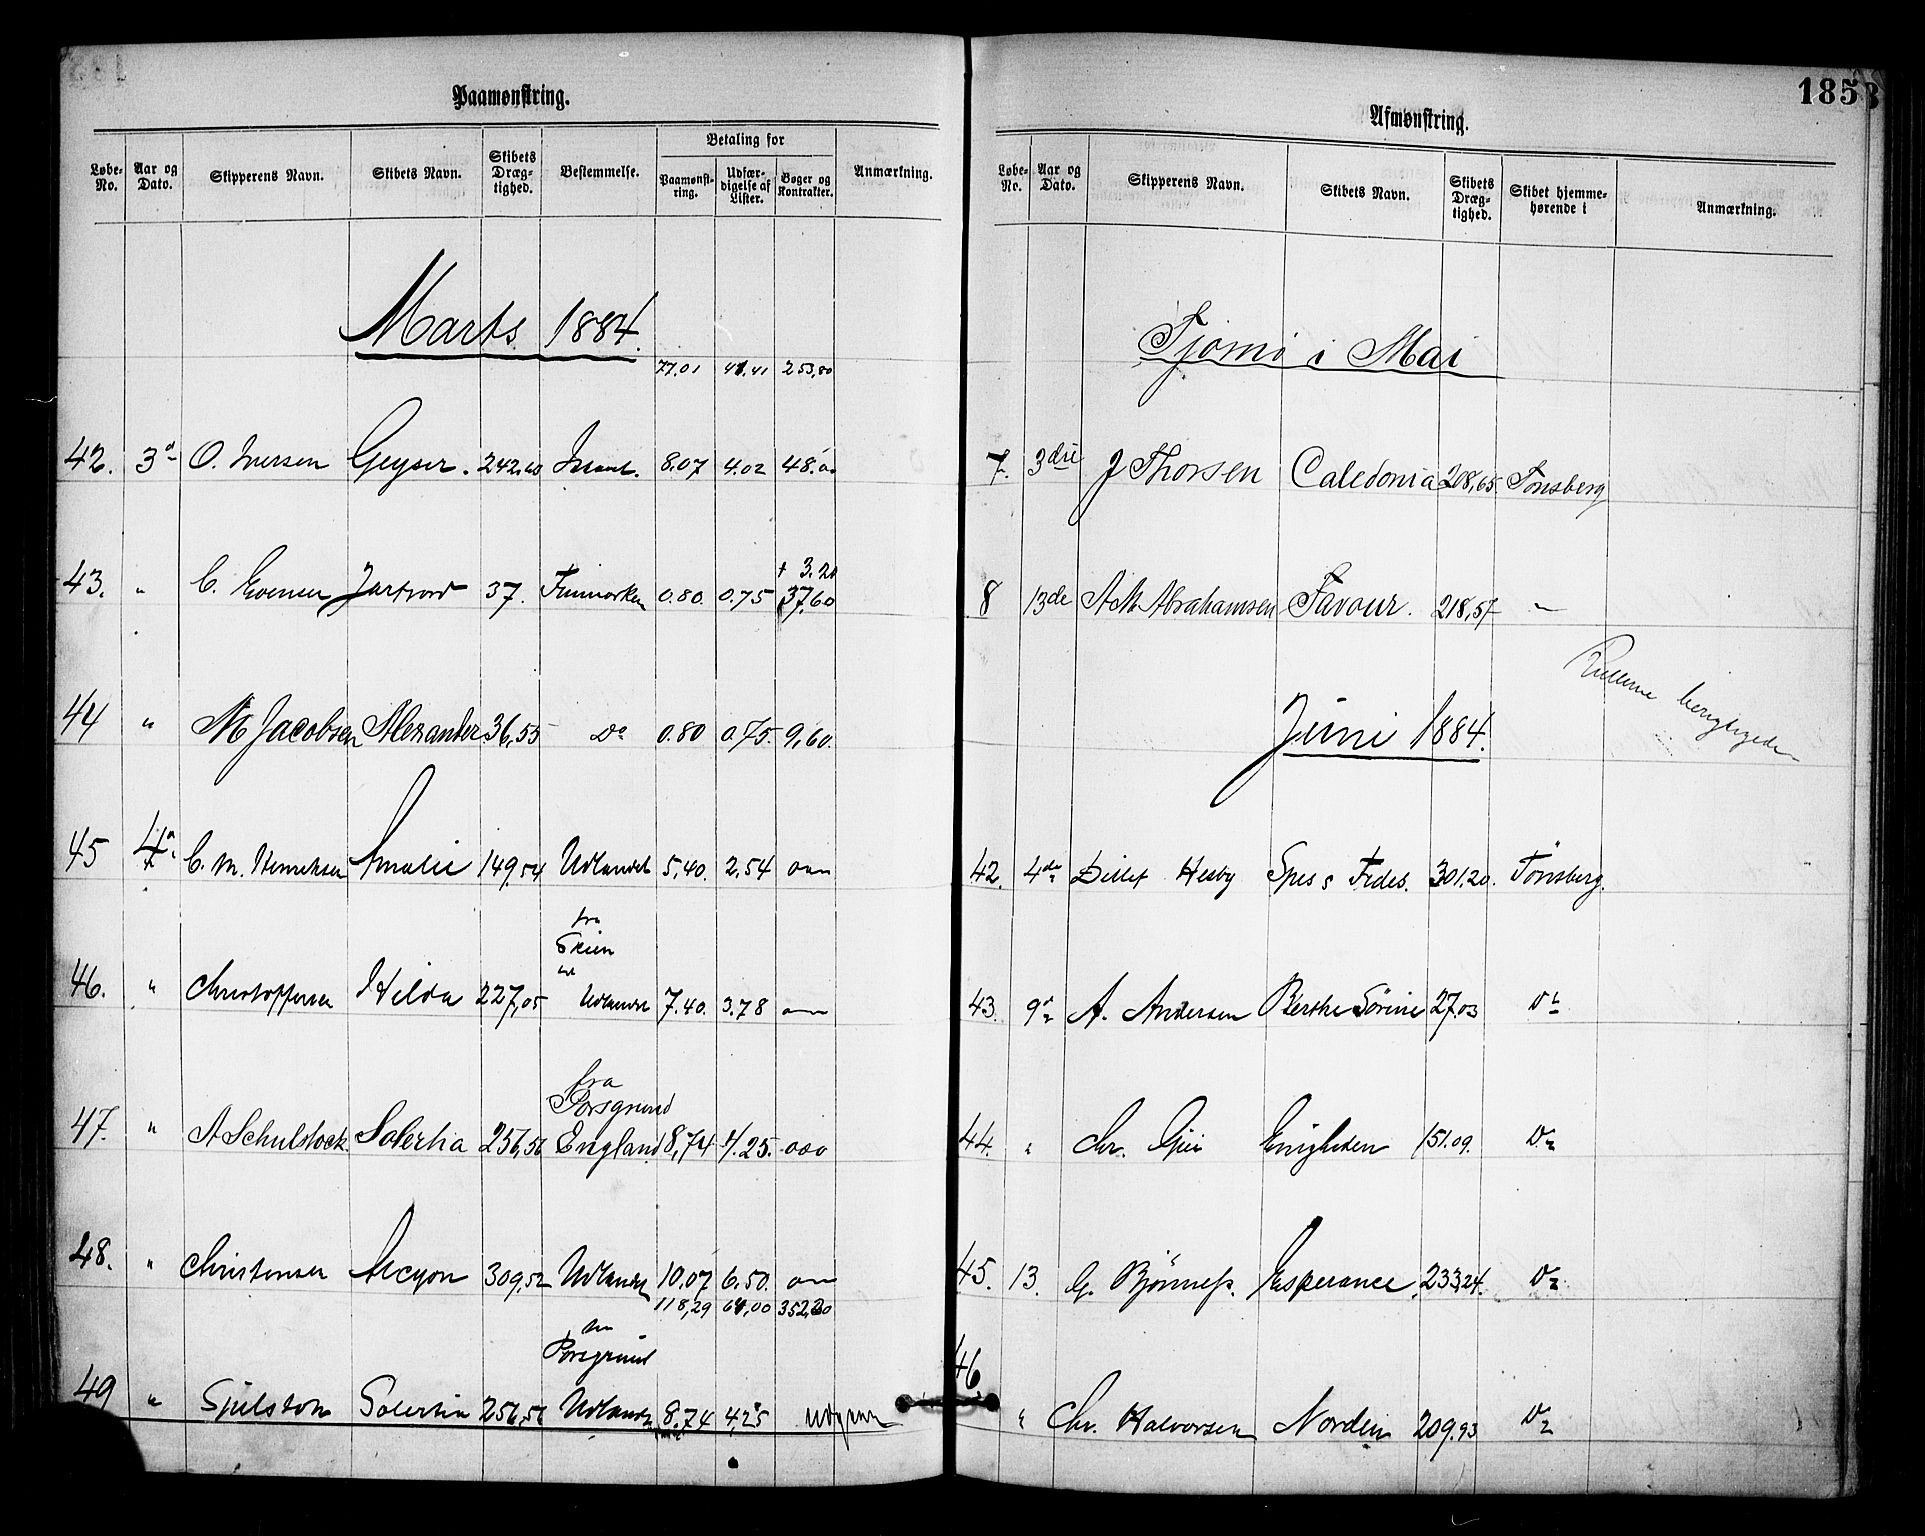 Paamønstring.
Løbe-No. Aar og Dato. Skipperens Navn. Skibets Navn. Skibets Dræg-tighed. Bestemmelse. Betaling for Paamønst-ring. Udfær-digelse af Lister. Bøger og Kontrakter. Anmærkning.
Marts 1884.
77.01 41.41 253,80
42. 3d O. Iversen Geyser. 242.60 8.07 4.02 48.00
+ 3.20
43. " C. Evensen 37. Finmarken 0.80. 0.75 37.60
44 " M Jacobsen Alexander 36,55 Do 0.80 0.75. 9,60.
45 4d C. M. Henriksen Amalie 149,54 Udlandet 5,40. 2,54
fra
Skien
46. " Christoffersen Hilda 227,05 Udlandet 7.40. 3.78
fra
Porsgrund
47. " A Schulstock Solertia 256,56 England 8,74 4.25.
48. " Christensen Alcyon 309,52 Udlandet 10.07 6.50.
118,29 64,00 352,20
Porsgrund
49 " Sjulstok Solertia 256,56 Udlandet 8.74 4,25 udgaar
1858
Afmønstring.
Løbe-Nr. Aar og Dato. Skipperens Navn. Skibets Navn. Skibets Dræg-tighed. Skibet hjemme-hørende i Anmærkning.
Tjømø i Mai
7. 3die J Thorsen Caledonia 208,65 Tønsberg
8 13de A M Abrahamsen Favour. 218,57 "
Rullerne
Juni 1884.
42. 4de Ditlef Hesby Spes & Fides. 301.20. Tønsberg.
43. 9d A. Andersen Berthe Sörine 27.03 Do
44. " Chr. Gjei Enigheden 151.09. Do
45. 13. G. Bjönness. Esperance 233,24. Do
46. " Chr. Halvorsen Norden 209.93 Do